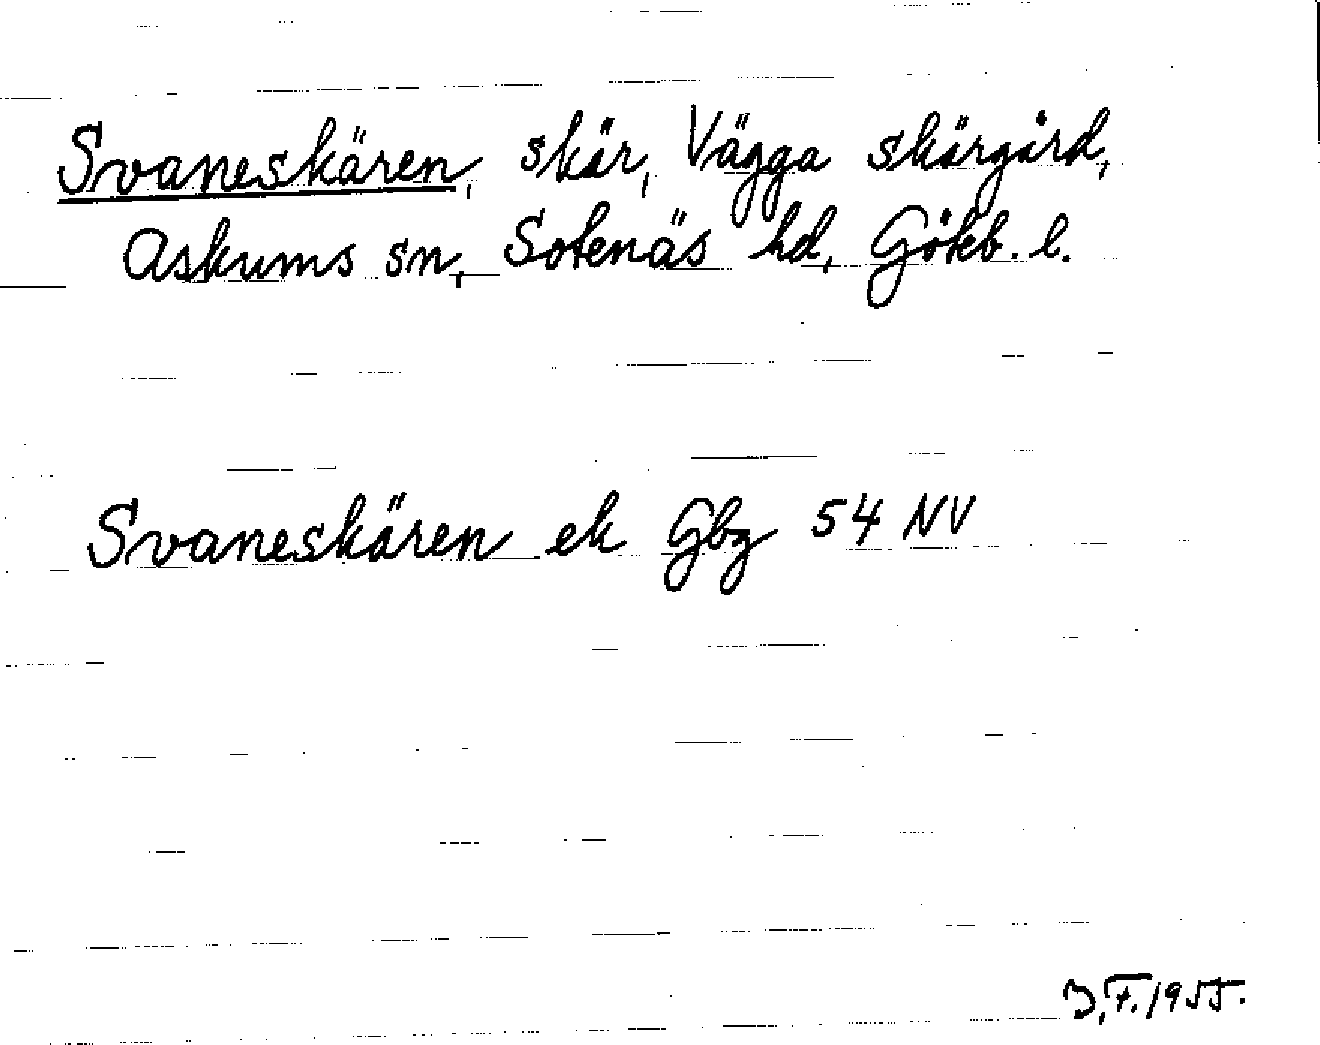 Svaneskären, skär, Vägga skärgård,
Askums sn, Sotenäs hd, Götb. l.
Svaneskären ek Gbg 54 NV
J.F. 1955.